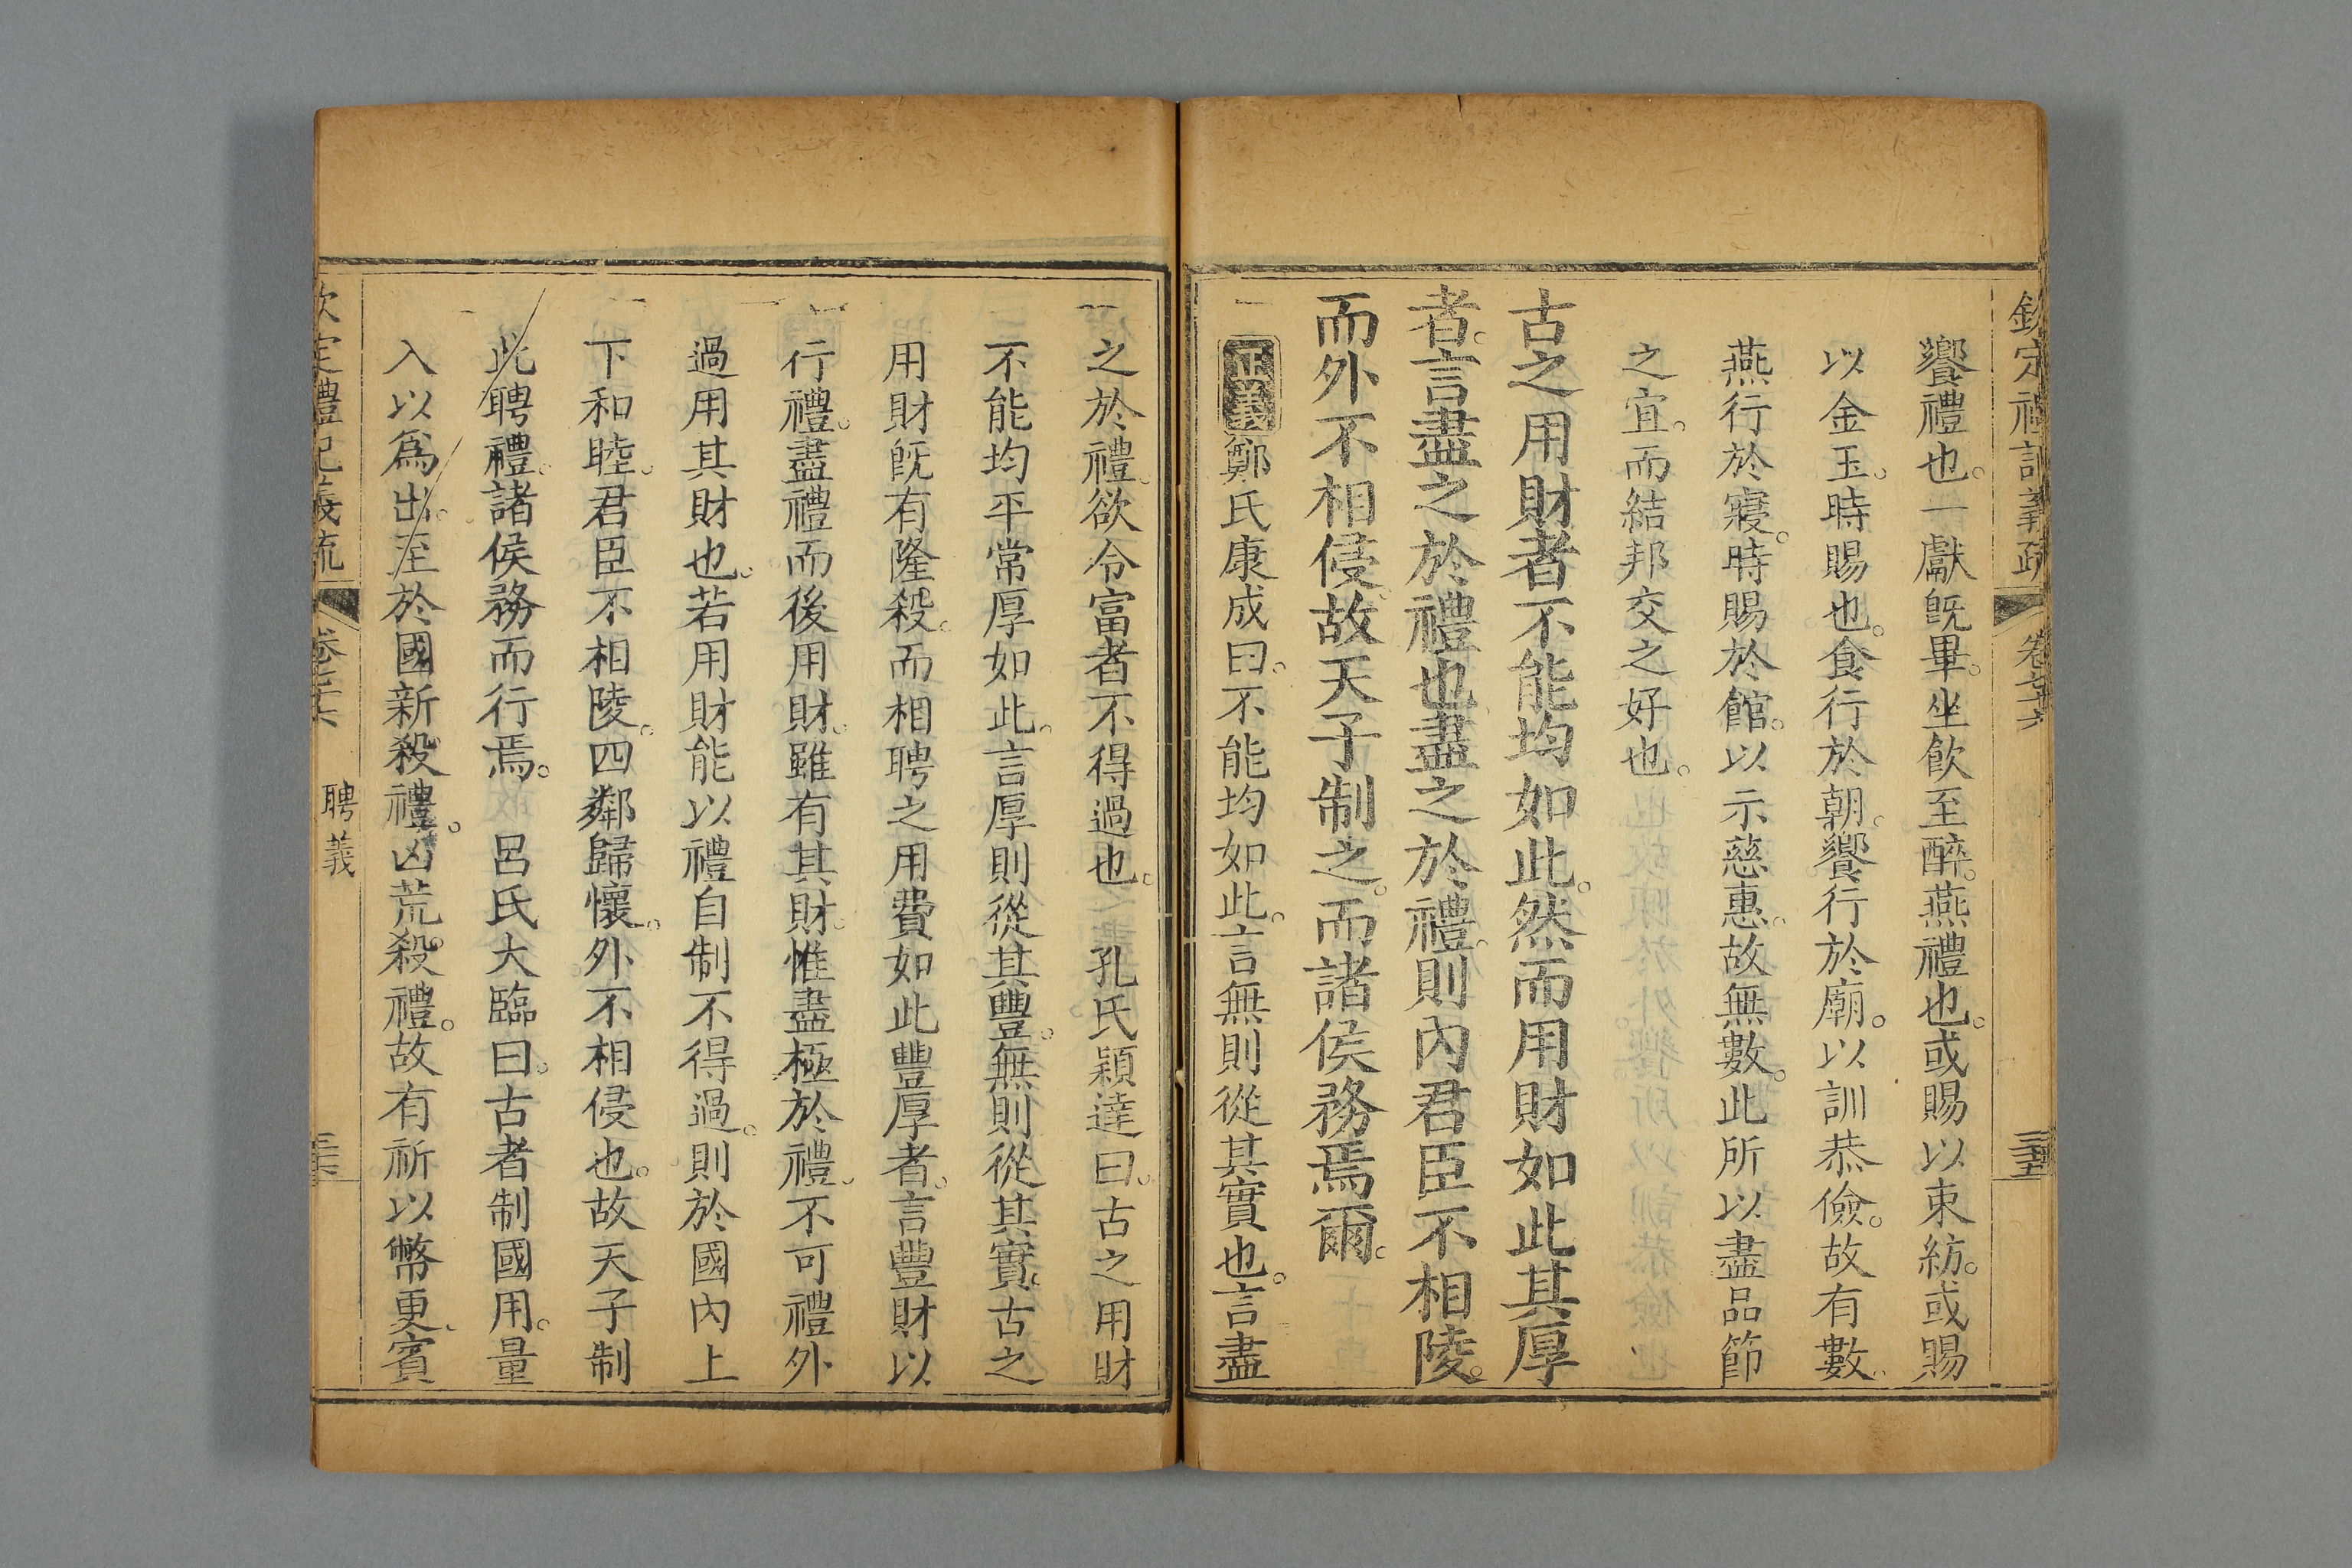 欽定禮記義疏 卷七十六
饗禮也一獻旣畢。坐飲至醉。燕禮也。或賜以束紡。或賜
以金玉。時賜也。食行於朝。饗行於廟。以訓恭儉。故有數。
燕行於寢。時賜於館。以示慈惠。故無數。此所以盡品節
之宜。而結邦交之好也。
古之用財者不能均如此。然而用財如此其厚
者。言盡之於禮也。盡之於禮。則內君臣不相陵。
而外不相侵。故天子制之。而諸侯務焉爾。
正義 鄭氏康成曰。不能均如此。言無則從其實也。言盡
之於禮。欲令富者不得過也。 孔氏穎達曰。古之用財
不能均平常厚如此。言厚則從其豐。無則從其實。古之
用財旣有隆殺。而相聘之用費如此豐厚者。言豐財以
行禮。盡禮而後用財。雖有其財。惟盡極於禮。不可禮外
過用其財也。若用財能以禮自制不得過。則於國內上
下和睦。君臣不相陵。四鄰歸懷。外不相侵也。故天子制
此聘禮。諸侯務而行焉。 呂氏大臨曰。古者制國用。量
入以爲出。至於國新殺禮。凶荒殺禮。故有祈以幣更。賓
欽定禮記義疏 聘義